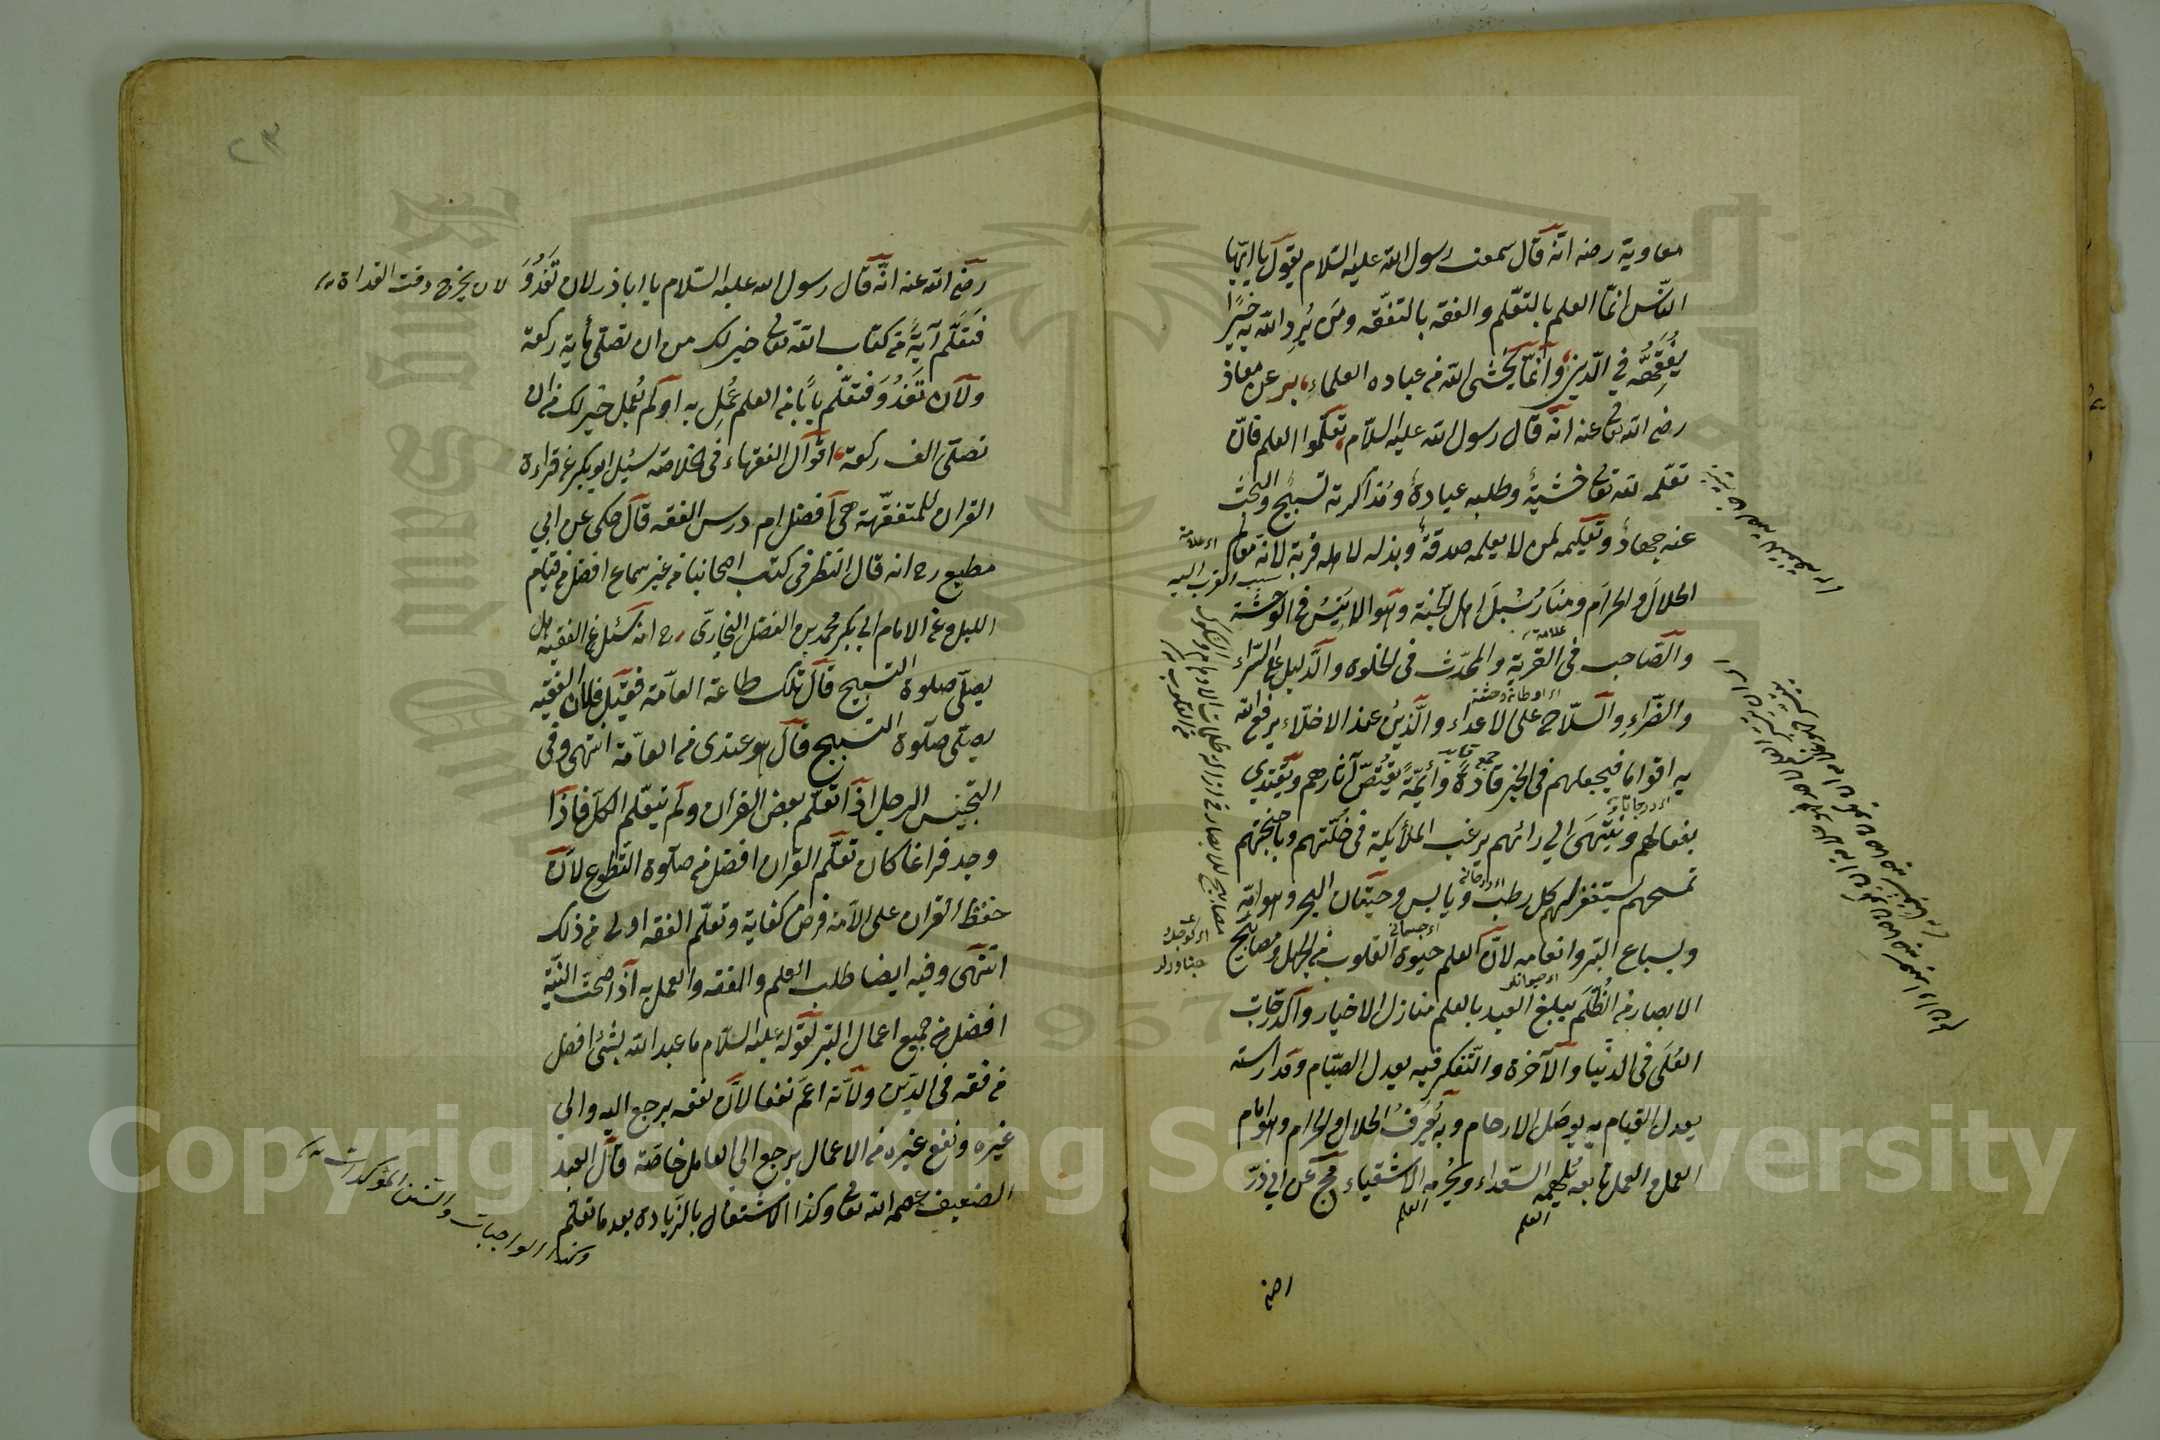 معاوية رضه انه قال سمعت رسول الله عليه السلام يقول يا ايها
الناس انما العلم بالتعلم والفقه بالتفقه ومن يرد الله به خيرا
يفقهه في الدين وانما يخشى الله من عباده العلماء بر عن معاذ
رضي الله تعالى عنه انه قال رسول الله عليه السلام تعلموا العلم فان
تعلمه لله تعالى خشية وطلبه عبادة ومذاكرته تسبيح والبحث
عنه جهاد وتعليمه لمن لا يعلمه صدقة وبذله لاهله قربة لانه معالم
الحلال والحرام ومنار سبل اهل الجنة وهو الانيس في الوحشة
والصاحب في الغربة والمحدث في الخلوة والدليل على السراء
والضراء والسلاح على الاعداء والزين عند الاخلاء يرفع الله
به اقواما فيجعلهم في الخير قادة وائمة يقتص آثارهم ويقتدي
بفعالهم وينتهى الى رائهم يرغب الملائكة في خلتهم وباجنحتهم
تمسحهم يستغفر لهم كل رطب ويابس وحيتان البحر وهوامه
وسباع البر وانعامه لان العلم حيوة القلوب من الجهل ومصابيح
الابصار من الظلم يبلغ العبد بالعلم منازل الاخيار والدرجات
العلى في الدنيا والآخرة والتفكر فيه يعدل الصيام ومدارسته
يعدل القيام به يوصل الارحام وبه يعرف الحلال والحرام وهو امام
العمل والعمل تابعه يلهمه السعداء ويحرمه الاشقياء مج عن ابي ذر
العلم
العلم
رضي
٢٣
رضي الله عنه انه قال رسول الله عليه السلام يا اباذر لان تغدو
لان يخرج وقت الغداة
فتعلم آية من كتاب الله تعالى خير لك من ان تصلى مأية ركعة
ولان تغدو فتعلم بابا من العلم عمل به او لم يعمل خير لك من ان
تصلى الف ركعة اقوال الفقهاء في الخلاصة سئل ابو بكر عن قراءة
القران للمتفقهة هي افضل ام درس الفقه قال حكى عن ابي
مطيع رح انه قال النظر في كتب اصحابنا من غير سماع افضل من قيام
الليل وعن الامام ابي بكر محمد بن الفضل البخاري رح انه سئل عن الفقيه هل
يصلى صلوة التسبيح قال تلك طاعة العامة فقيل فلان الفقيه
يصلى صلوة التسبيح قال هو عندى من العامة انتهى وفي
التجنيس الرجل اذا تعلم بعض القران ولم يتعلم الكل فاذا
وجد فراغا كان تعلم القران افضل من صلوة التطوع لان
حفظ القران على الامة فرض كفاية وتعلم الفقه اولى من ذلك
انتهى وفيه ايضا طلب العلم والفقه والعمل به اذا صحت النية
افضل من جميع اعمال البر لقوله عليه السلام ما عبد الله بشئ افضل
من فقه في الدين ولانه اعم نفعا لان نفعه يرجع اليه والى
غيره ونفع غيره من الاعمال يرجع الى العامل خاصة قال العبد
الضعيف عصمه الله تعالى وكذا الاشتغال بالزيادة بعد ما تعلم
وكذا الواجبات والسنن المؤكدات
Copyright © King Saud University
1957